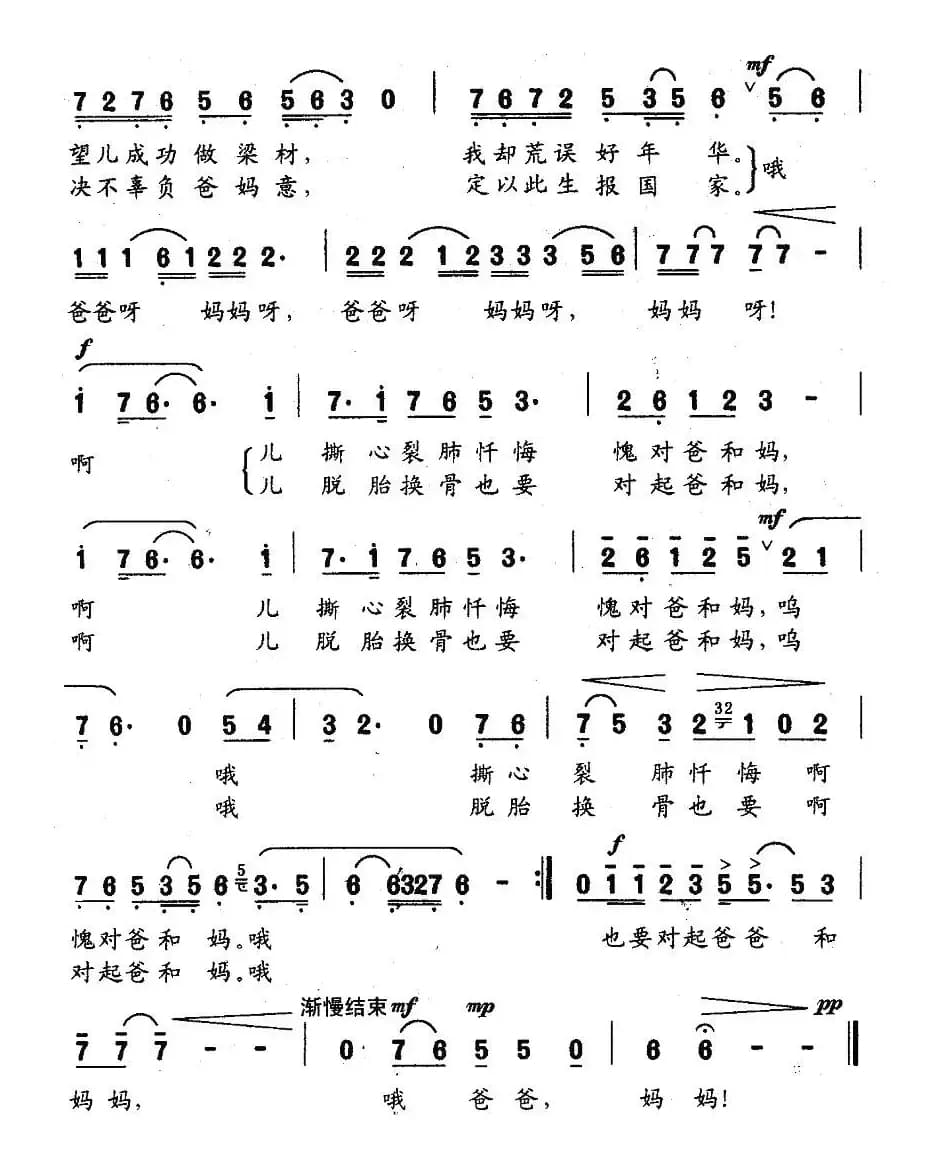 mf
7 2 7 6 5 6 5 6 3 0 | 7 6 7 2 5 3 5 6 ∨ 5 6 |
望儿成功做梁材， 我却荒误好年 华。 哦
决不辜负爸妈意， 定以此生报国 家。
1 1 1 6 1 2 2 2 2· | 2 2 2 1 2 3 3 3 3 5 6 | 7 7 7 7 7 - |
爸爸呀 妈妈呀， 爸爸呀 妈妈呀， 妈妈 呀！
f
1 7 6· 6· 1 | 7· 1 7 6 5 3· | 2 6 1 2 3 - |
啊 儿 撕心裂肺忏悔 愧对爸和妈，
儿 脱胎换骨也要 对起爸和妈，
mf
1 7 6· 6· 1 | 7· 1 7 6 5 3· | 2 6 1 2 5 ∨ 2 1 |
啊 儿 撕心裂肺忏悔 愧对爸和妈，呜
啊 儿 脱胎换骨也要 对起爸和妈，呜
7 6· 0 5 4 | 3 2· 0 7 6 | 7 5 3 2 32 1 0 2 |
哦 撕心 裂 肺忏悔 啊
哦 脱胎 换 骨也要 啊
f
7 6 5 3 5 6 5 3· 5 | 6 6 3 2 7 6 - :| 0 1 1 2 3 5 5· 5 3 |
愧对爸和 妈。哦 也要对起爸爸 和
对起爸和 妈。哦
渐慢结束 mf mp pp
7 7 7 - - | 0 7 6 5 5 0 | 6 6 - - ‖
妈妈， 哦 爸爸， 妈 妈！